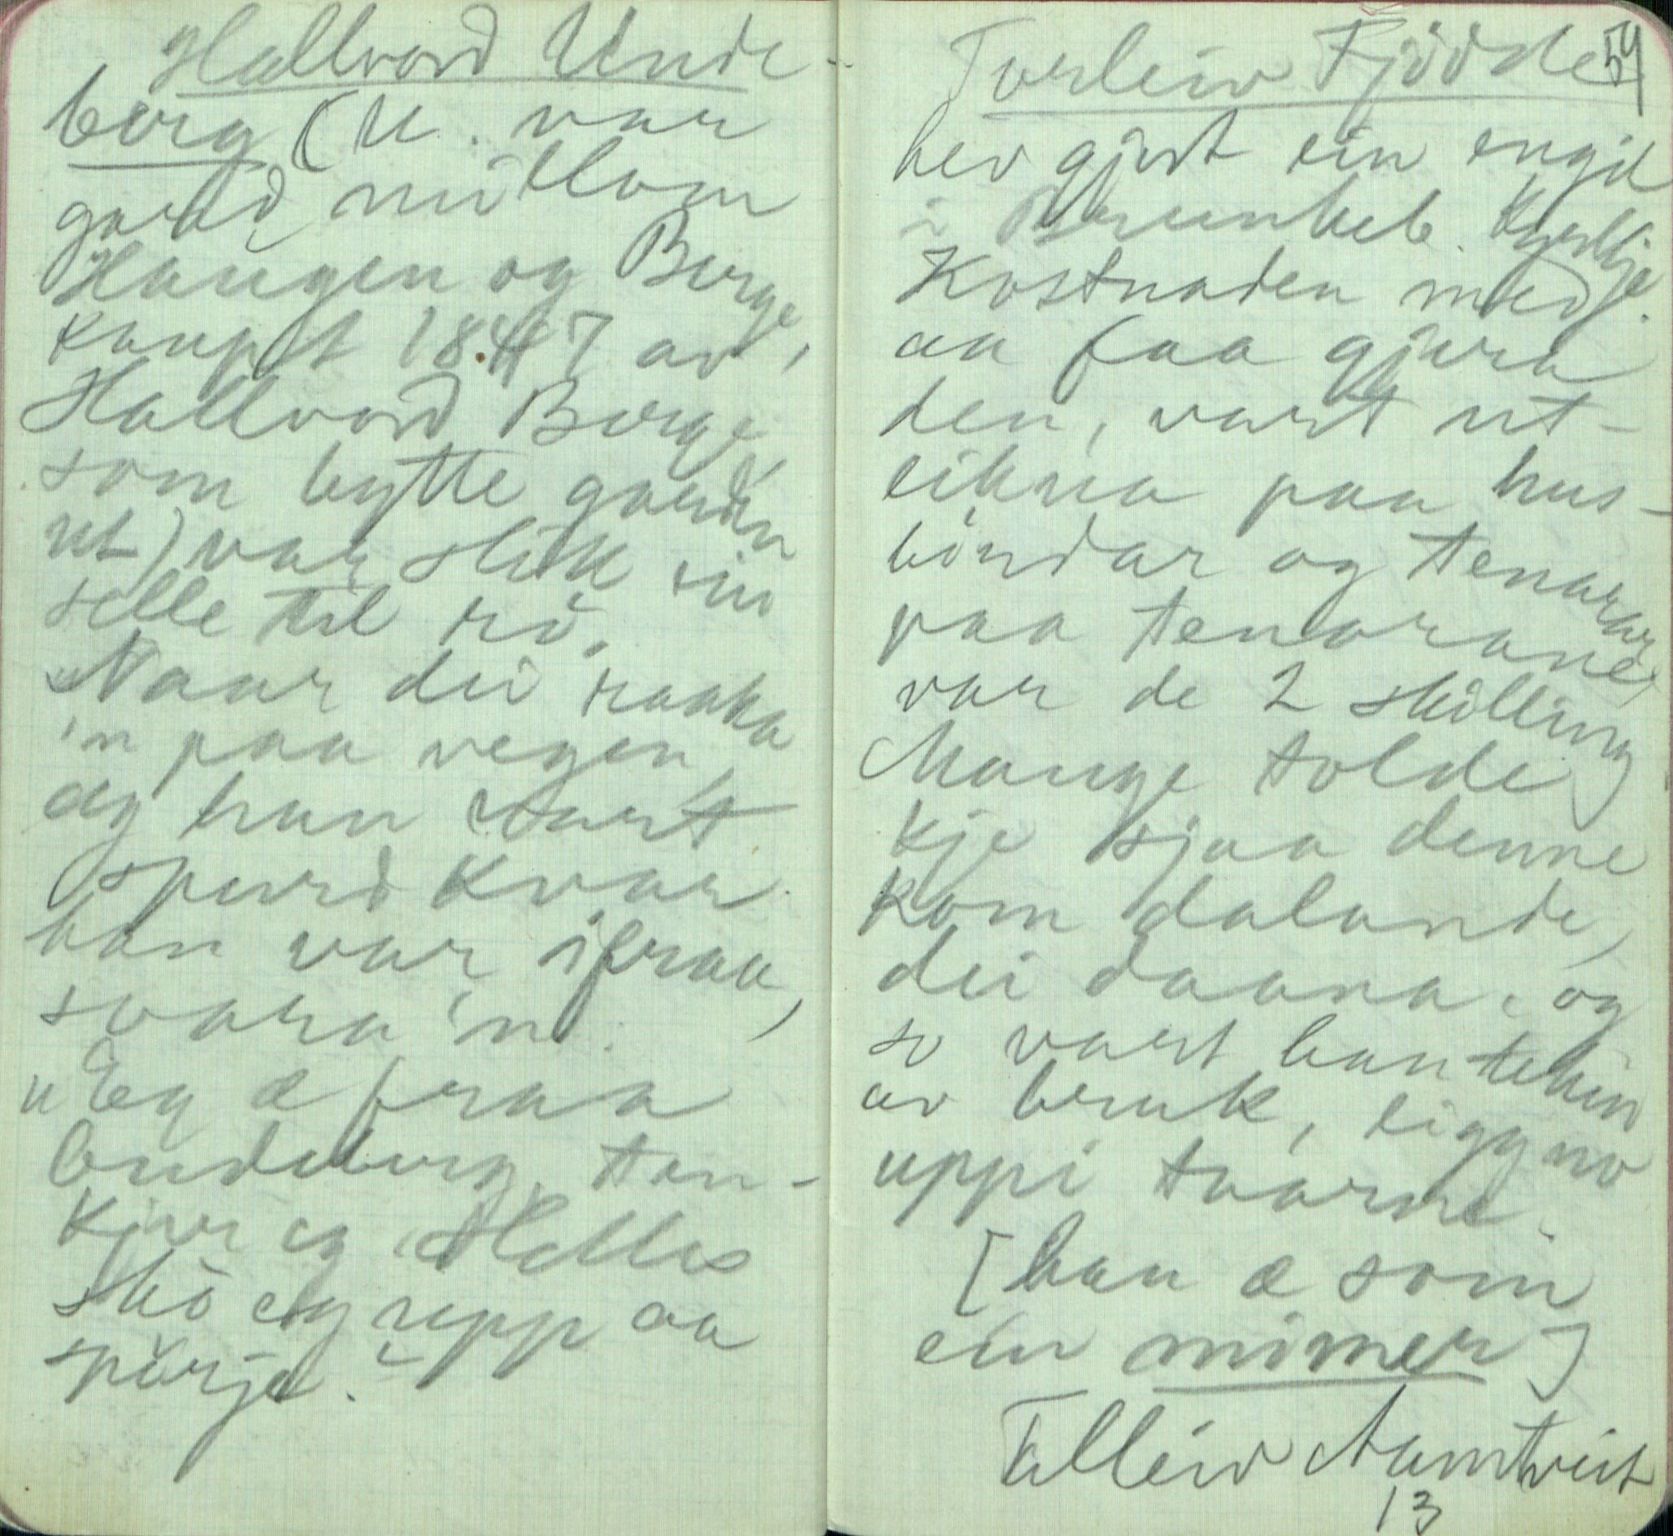 Hallvord Unde-
berg (U. var
gard millom
Haugen og Berge,
kaupt 1847 av
Hallvord Berge
som bytte garden
ut) var slik ein
selle til rö.
Naar dei raaka
'n paa vegen,
og han vart
spurd kvar
han var ifraa,
svara 'n:
"Eg æ fraa
Undeberg, ten-
kjer eg. Helles
skö eg upp aa
spörja."
Torleiv Fjödde 54
hev gjort ein engil
i Brunkeb. kyrkje.
Kostnaden med
aa faa gjera
den, vart ut-
likna paa hus-
böndar og tenarar
paa tenarane
var de 2 skilling
Mange tolde
kje sjaa denne
kom dalande,
dei daana, og
so vart han tekin
av bruk, ligg no
uppi taarne.
[han æ som
ein mimer]
Telleiv Aamtveit
13